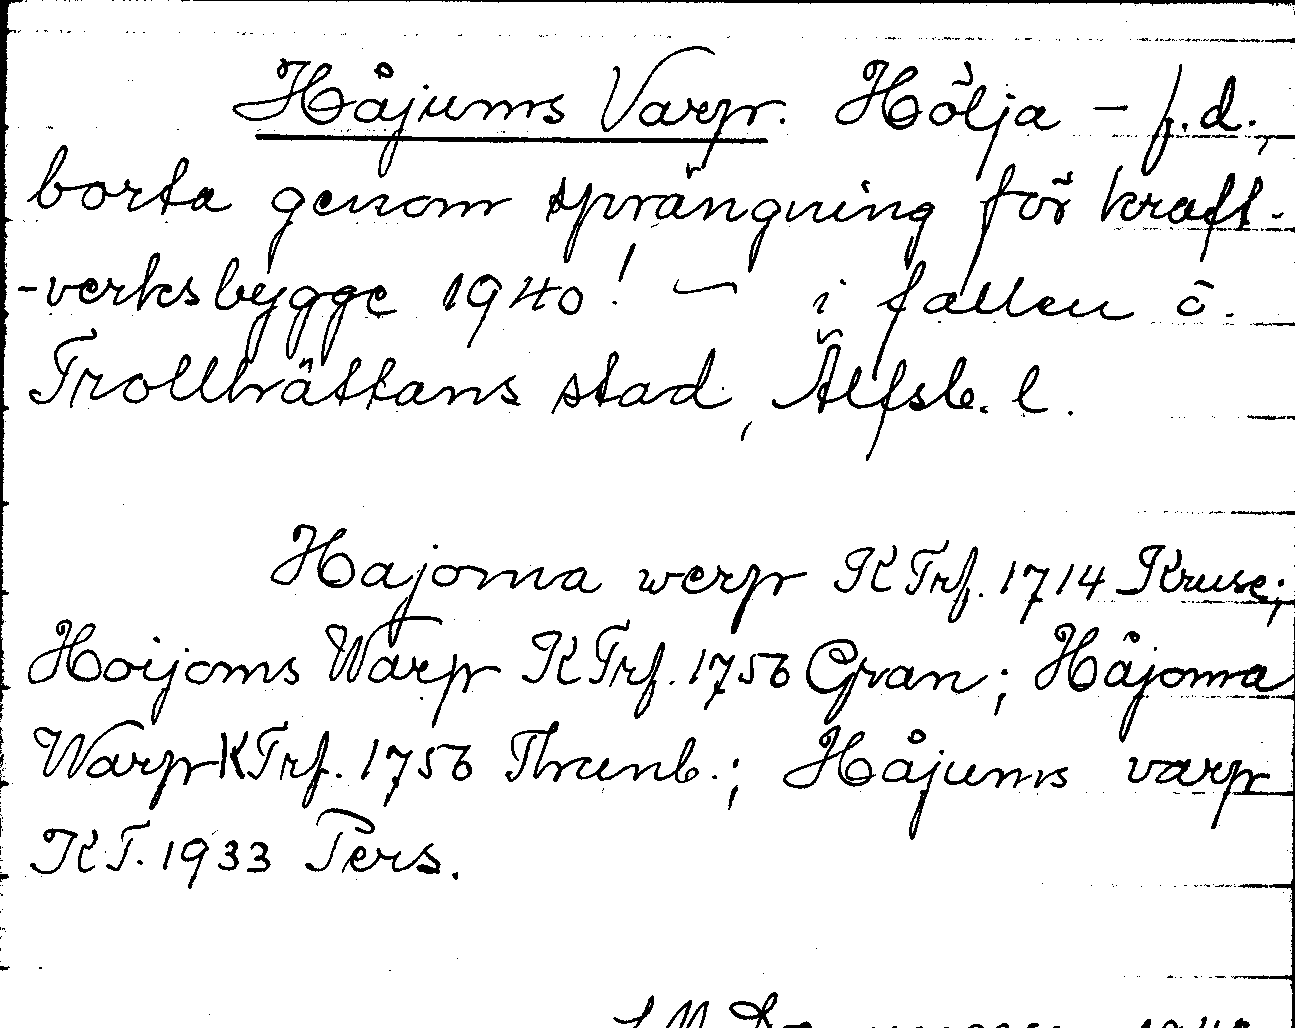 Håjums Varp. Hölja – f.d.,
borta genom sprängning för kraft-
-verksbygge 1940! – i fallen ö.
Trollhättans stad, Älfsb. l.
Hajoma werp KTrf. 1714 Kruse;
Hoijoms Warp KTrf. 1756 Gran; Håjoma
Warp KTrf. 1756 Thunb.; Håjums varp
KT. 1933 Pers.